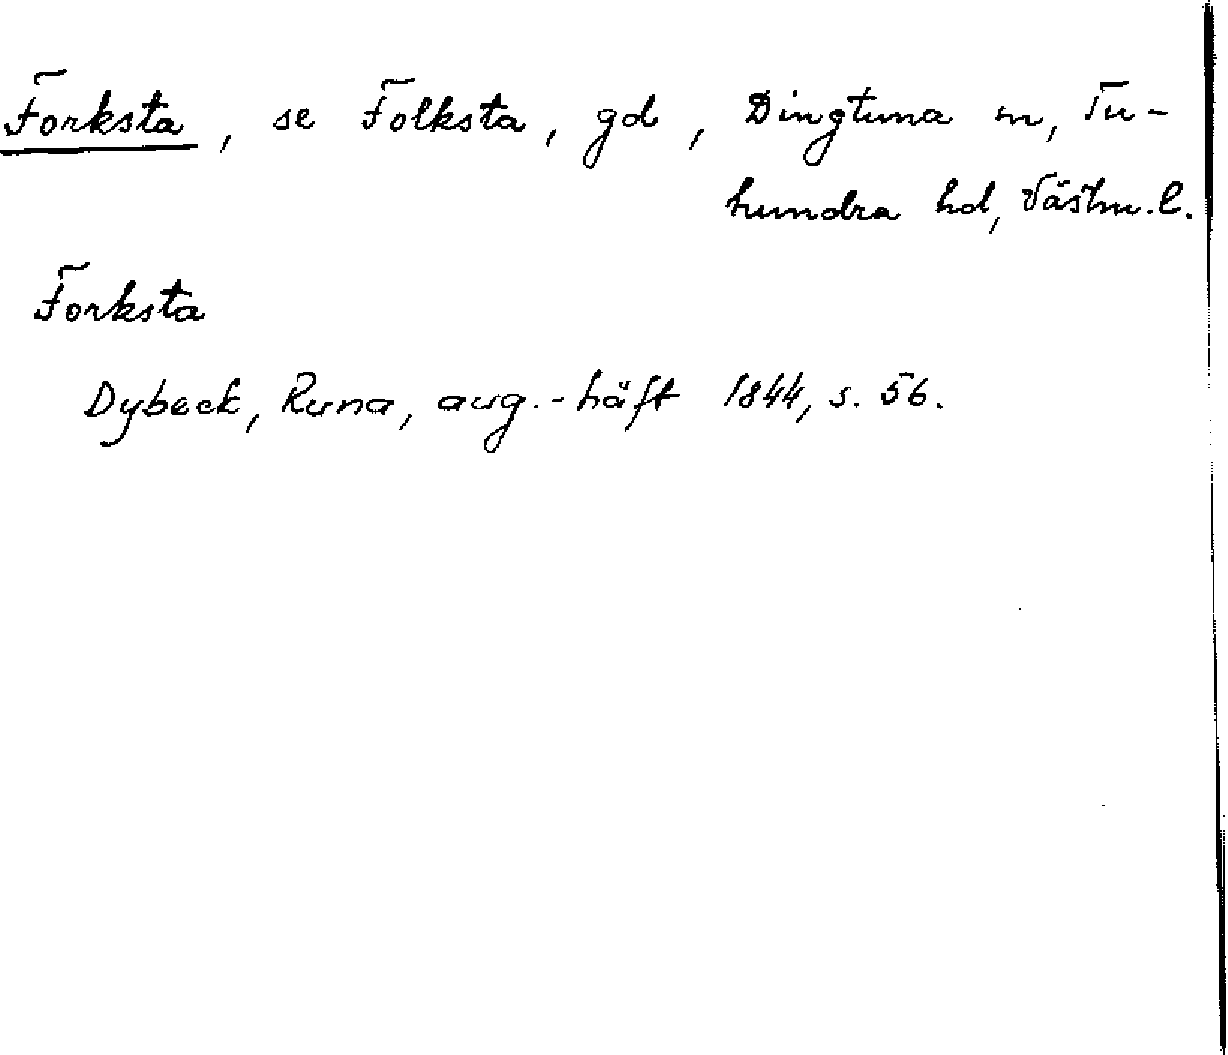 Forksta, se Folksta, gd, Dingtuna sn, Tu-
hundra hd, Västm. l.
Forksta
Dybeck, Runa, aug.-häft 1844, s. 56.